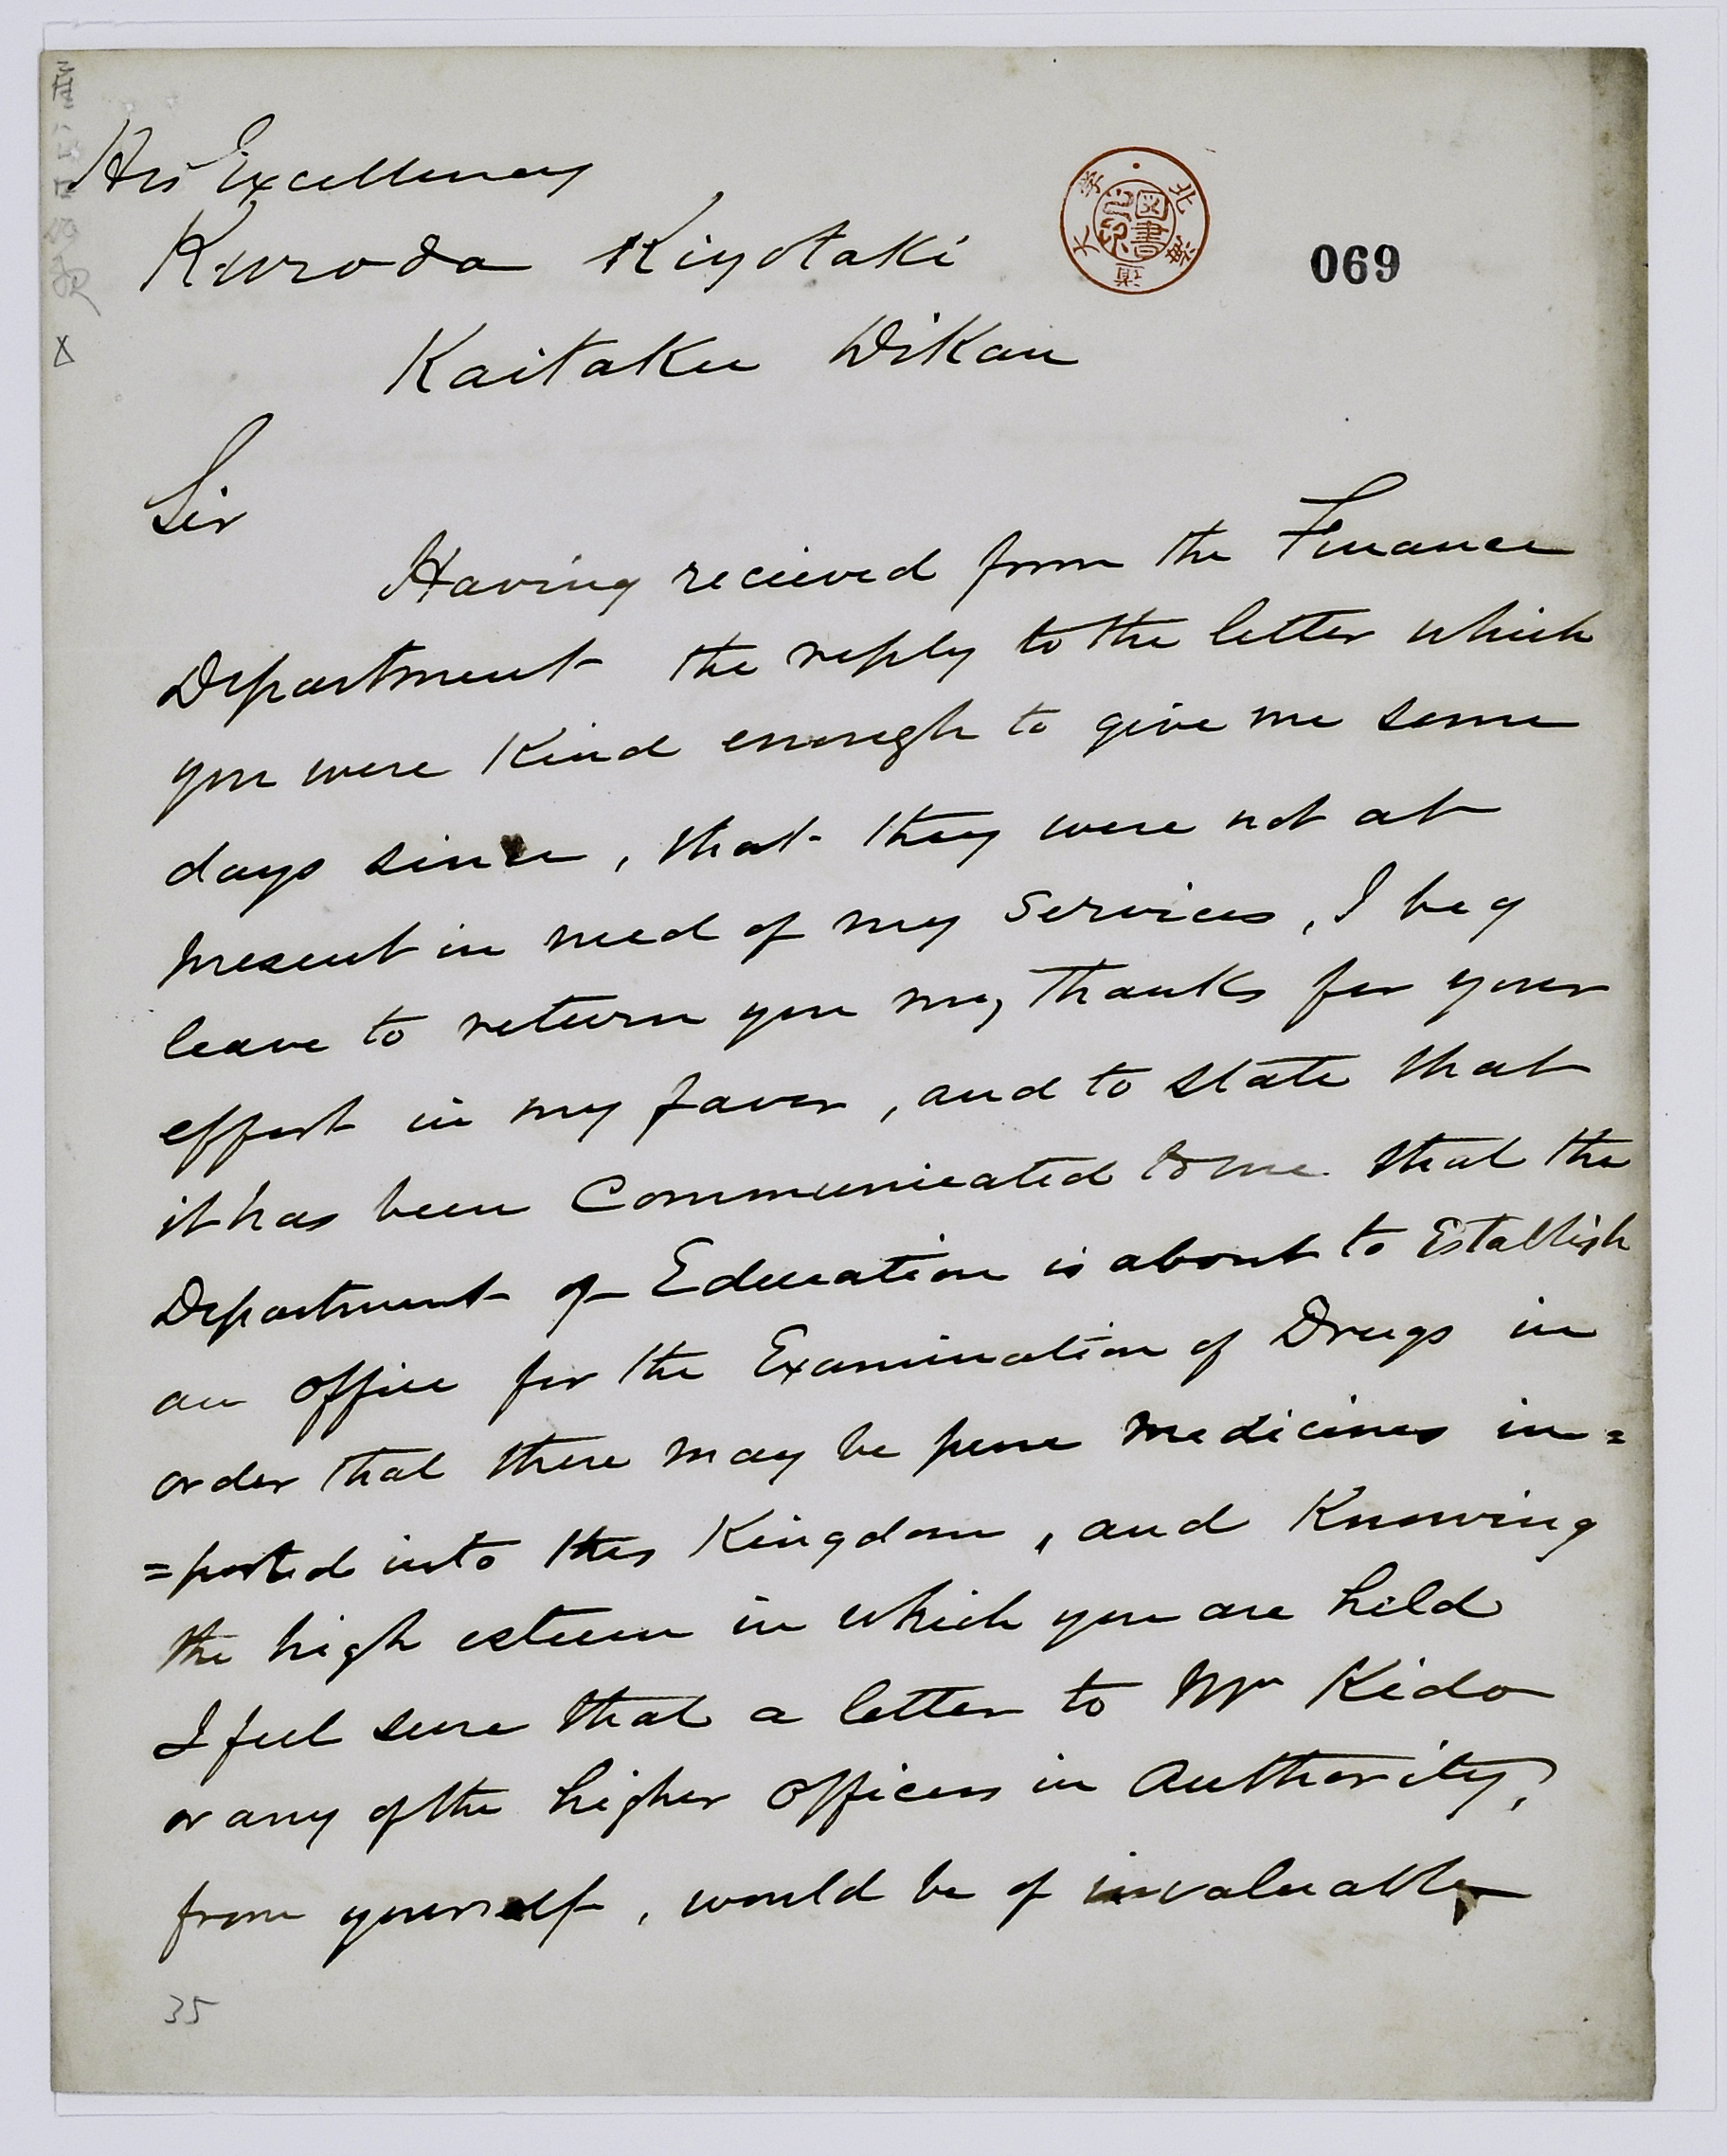 His Excellency
Kuroda Kiyotaki
069
Kaitaku Dikan
Sir
Having recieved from the Finance
Department the reply to the letter which
you were Kind enough to give me some
days since, that they were not at
present in need of my services, I beg
leave to return you my thanks for your
effort in my favor, and to state that
it has been Communicated to me that the
Department of Education is about to Establish
an office for the Examination of Drugs in
order that there may be pure medicines im=
=ported into this Kingdom, and Knowing
the high esteem in which you are held
I feel sure that a letter to Mr Kido
or any of the higher officers in Authority,
from yourself, would be of invaluable
35
北海道大学
図書之印